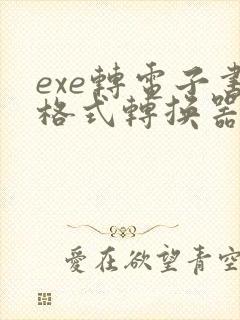 exe轉電子書
格式轉換器
愛在欲望青空